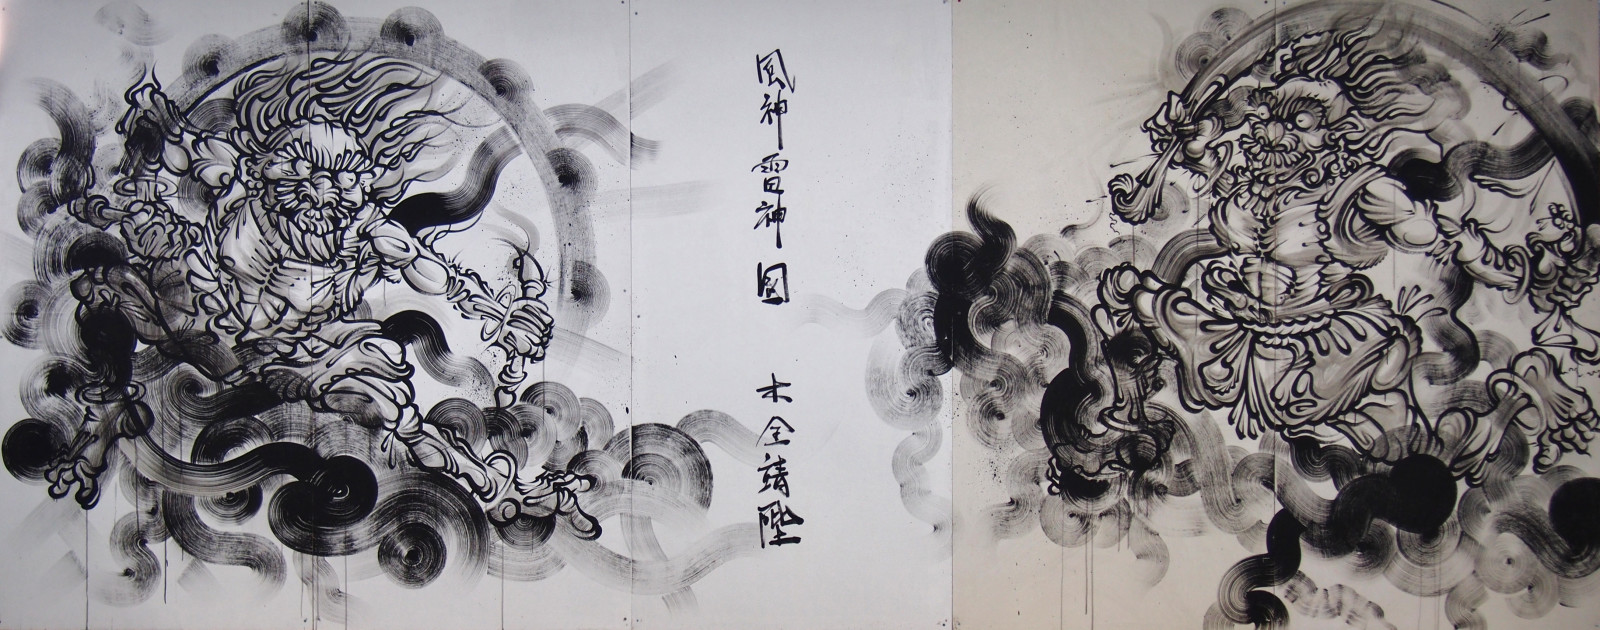 風神雷神図
木全靖陛